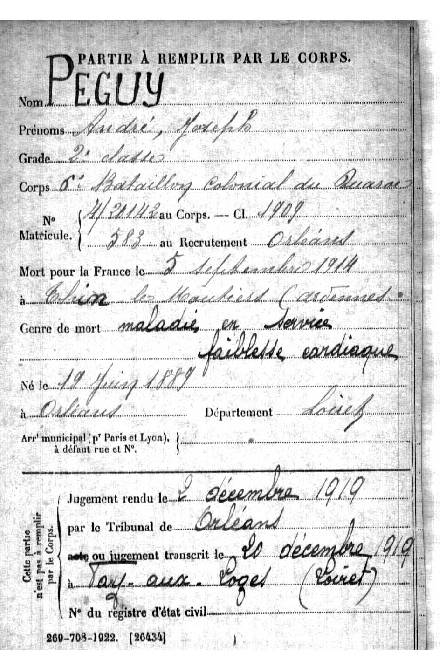 PARTIE À REMPLIR PAR LE CORPS.
Nom PEGUY
Prénoms André, Joseph
Grade 2e classe
Corps 6e Bataillon Colonial du Maroc
No Matricule. { 4/21142 au Corps. — Cl. 1909
583 au Recrutement Orléans
Mort pour la France le 5 septembre 1914
à Thin le Moutiers (Ardennes
Genre de mort maladie en service
faiblesse cardiaque
Né le 19 Juin 1889
à Orléans Département Loiret
Arrt municipal (pr Paris et Lyon), à défaut rue et No. {
Cette partie n'est pas à remplir par le Corps.
Jugement rendu le 2 décembre 1919
par le Tribunal de Orléans
acte ou jugement transcrit le 20 décembre 1919
à Fay-aux-Loges (Loiret)
No du registre d'état civil
269-708-1922. [26434]